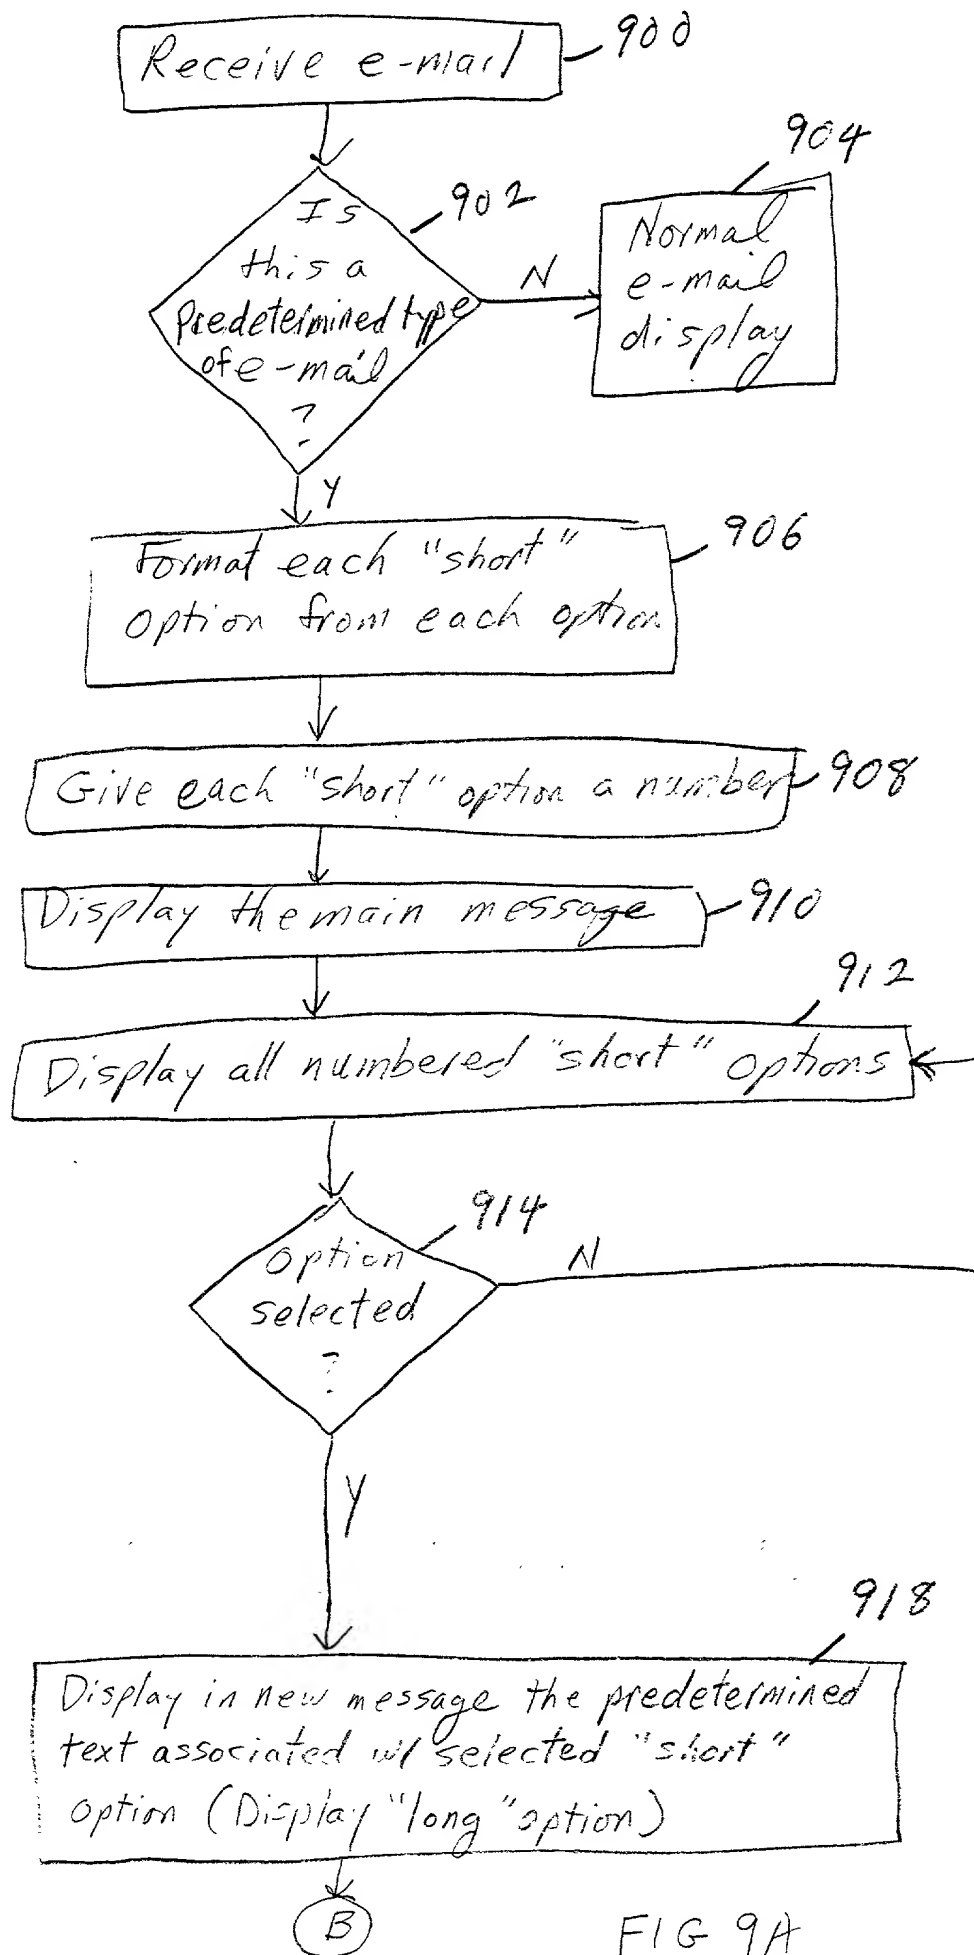 Receive e-mail
900
904
902
Is
this a
Predetermined type
of e-mail
?
N
Normal
e-mail
display
Y
906
Format each "short"
option from each option
Give each "short" option a number
908
Display the main message
910
912
Display all numbered "short" options
914
Option
selected
?
N
Y
918
Display in new message the predetermined
text associated w/ selected "short"
option (Display "long" option)
B
FIG 9A